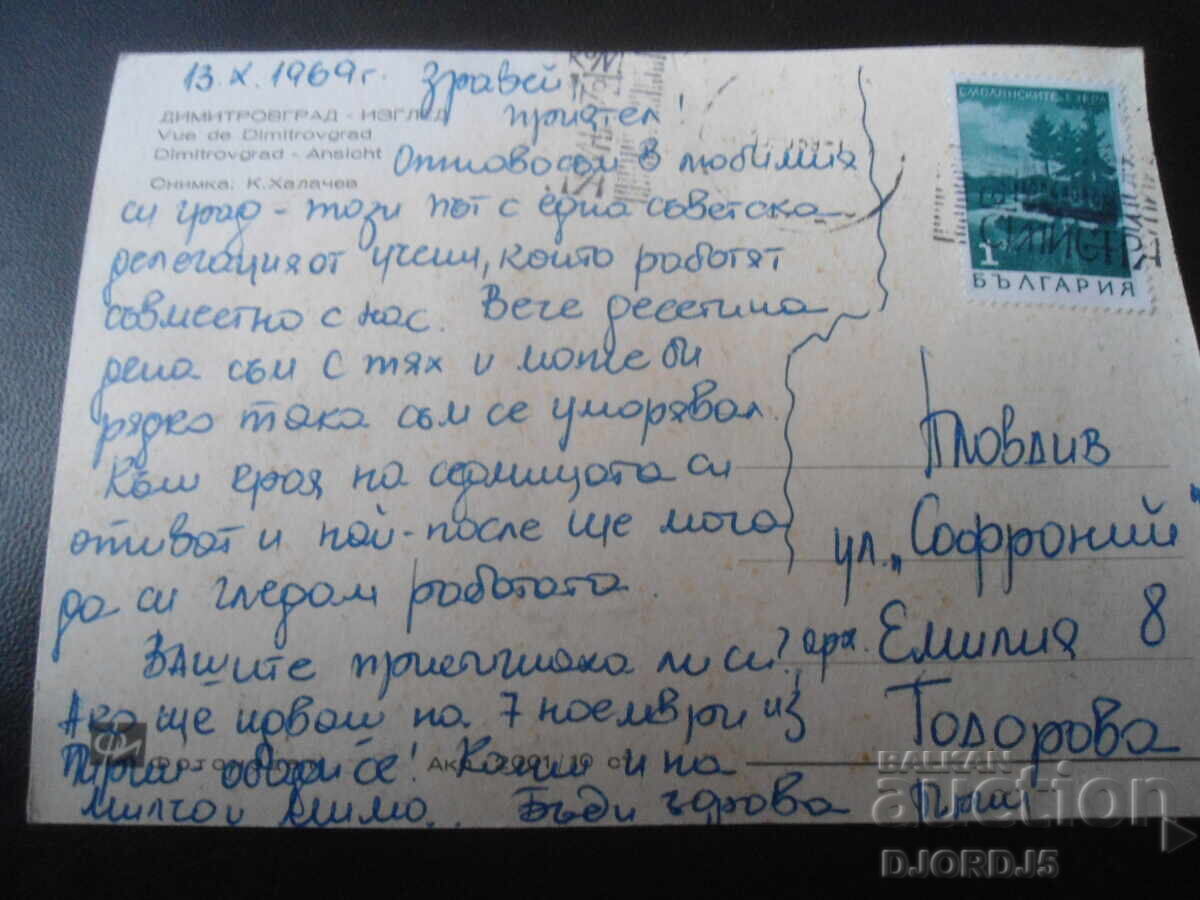 13.X.1969 г. Здравей
приятел!
ДИМИТРОВГРАД - ИЗГЛЕД
Vue de Dimitrovgrad
Dimitrovgrad - Ansicht
Снимка: К. Халачев
Отново съм в любимия
си град - този път с една съветска
делегация от учени, които работят
съвместно с нас. Вече десетина
дена съм с тях и може би
рядко така съм се уморявал.
Към края на седмицата си
отиват и най-после ще мога
да си гледам работата.
Вашите ли си?
Ако ще идваш на 7 ноември из
обади се! Кажи и на
Милчо и Мимо. Бъди здрава
СМОЛЯНСКИТЕ ЕЗЕРА
1
БЪЛГАРИЯ
Пловдив
ул. „Софроний"
арх. Емилия 8
Тодорова
BALKAN
auction
DJORDJ5